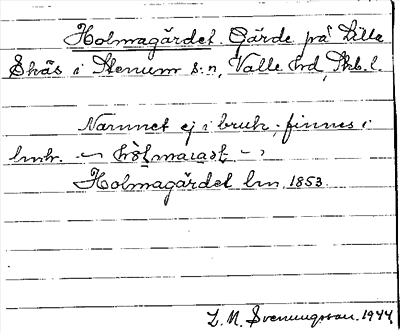 Holmagärdet. Gärde på Lilla
Skäs i Stenum s:n, Valle hd, Skb. l.
Namnet ej i bruk, finnes i
lmh.
Holmagärdet lm, 1853.
L. M. Svenungsson. 1944.